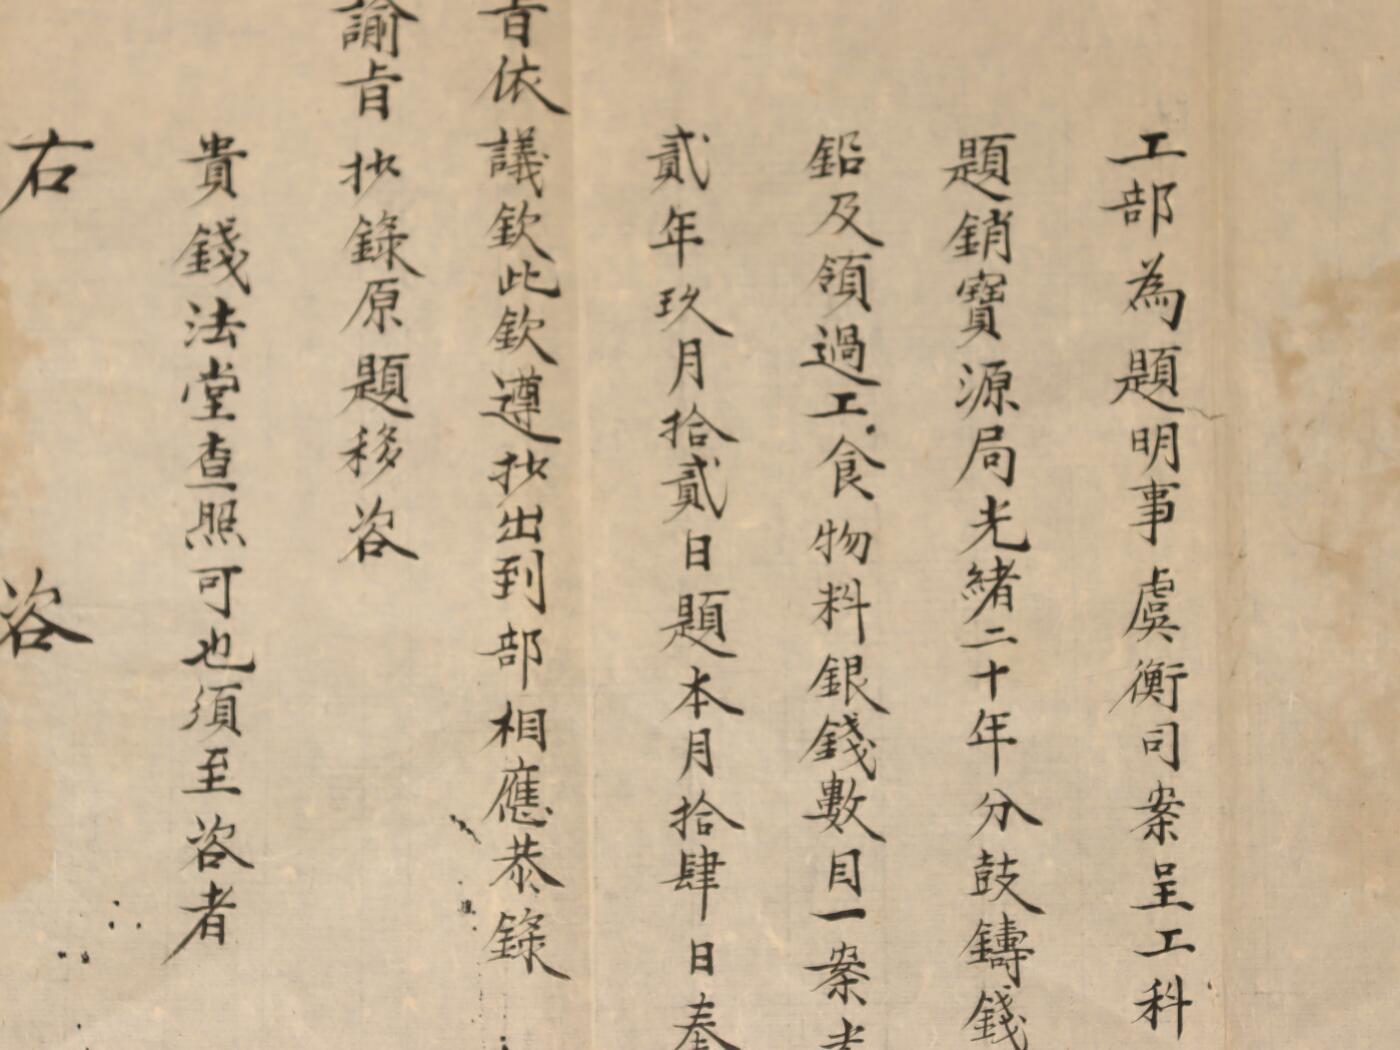 工部為題明事虞衡司案呈工科
題銷寶源局光緒二十年分鼓鑄錢
鉛及領過工食物料銀錢數目一案
貳年玖月拾貳日題本月拾肆日奉
旨依議欽此欽遵抄出到部相應恭錄
諭旨抄錄原題移咨
貴錢法堂查照可也須至咨者
右咨